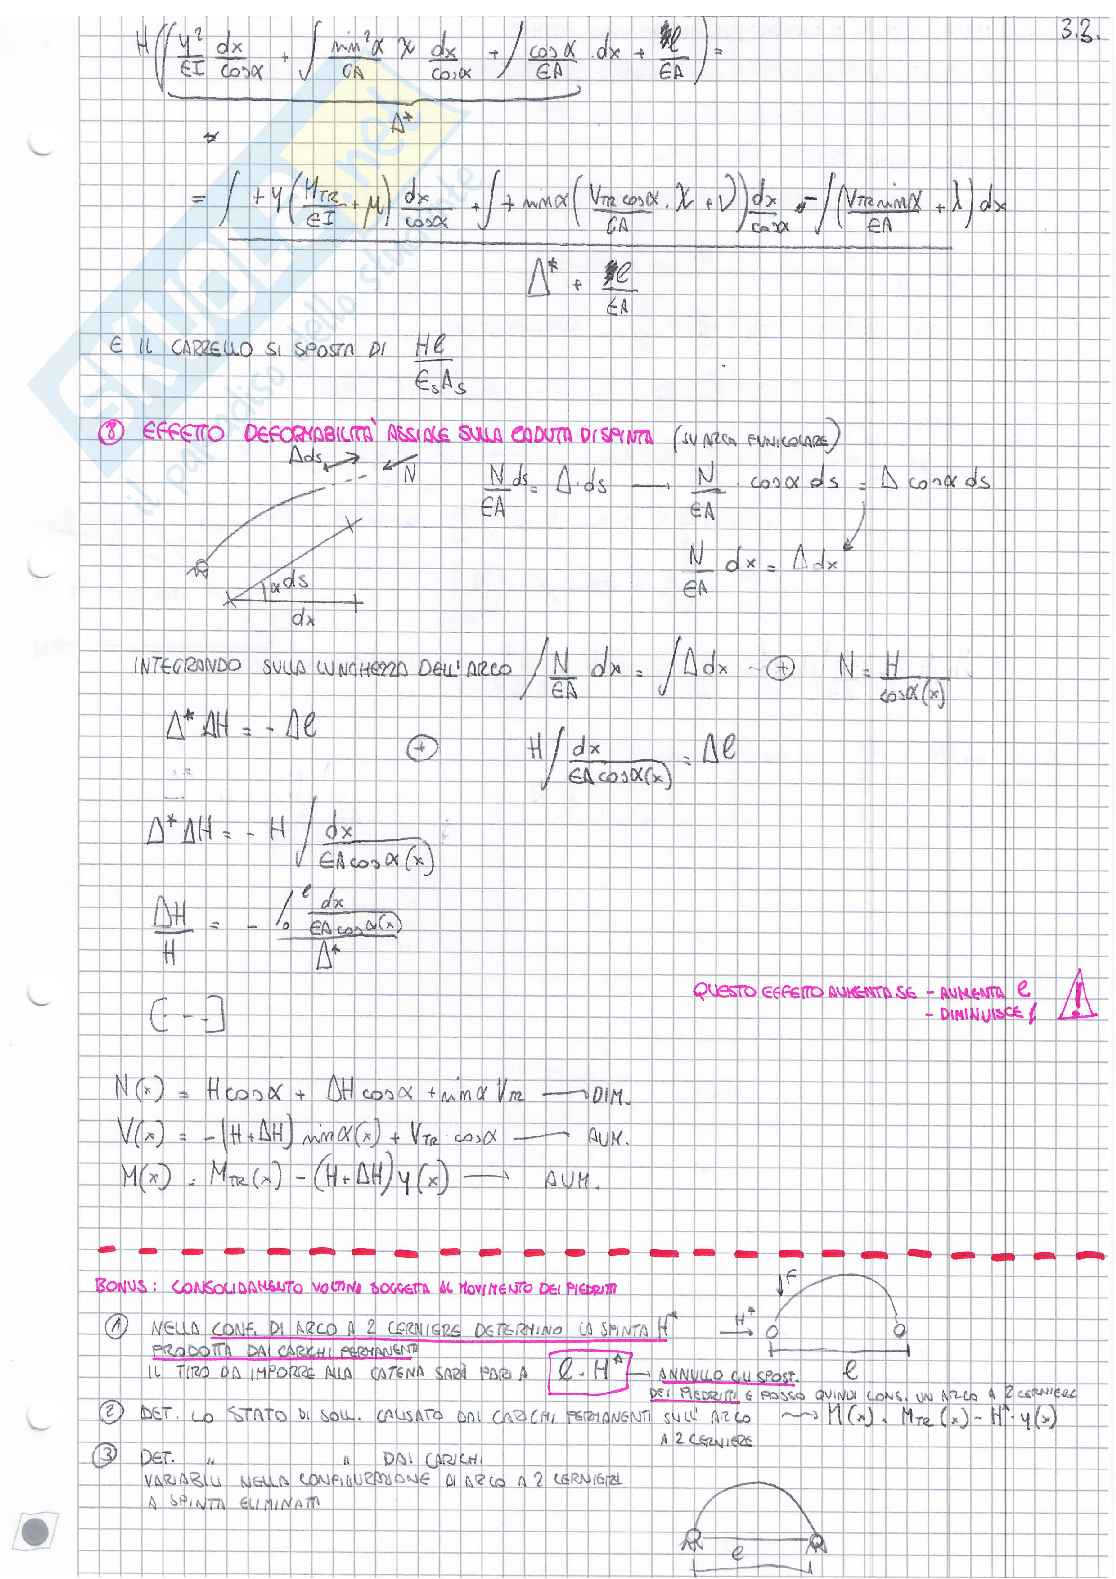 3.3.
H(∫ y²/EI dx/cosα + ∫ sin²α/GA χ dx/cosα + ∫ cosα/EA · dx + l/EA) =
Δ*
= ∫ + y (M_TR/EI + μ) dx/cosα + ∫ + sinα (V_TR cosα/GA · χ + ν) dx/cosα - ∫ (V_TR sinα/EA + λ) dx
Δ* + l/EA
E IL CARRELLO SI SPOSTA DI Hl/E_sA_s
⑧ EFFETTO DEFORMABILITA' ASSIALE SULLA CADUTA DI SPINTA (SU ARCO FUNICOLARE)
Δds N
N/EA ds = Δ·ds → N/EA · cosα ds = Δ cosα ds
N/EA dx = Δdx
α ds
dx
INTEGRANDO SULLA LUNGHEZZA DELL'ARCO ∫ N/EA dx = ∫ Δdx ⊕ N = H/cosα(x)
Δ* ΔH = - Δl ⊕ H ∫ dx/EA cosα(x) = Δl
Δ* ΔH = - H ∫ dx/EA cosα(x)
ΔH/H = - ∫₀^l dx/EA cosα(x) / Δ*
QUESTO EFFETTO AUMENTA SE - AUMENTA l
- DIMINUISCE f
!
[---]
N(x) = H cosα + ΔH cosα + sinα V_TR → DIM.
V(x) = -(H+ΔH) sinα(x) + V_TR · cosα → AUM.
M(x) = M_TR(x) - (H+ΔH) y(x) → AUM.
BONUS: CONSOLIDAMENTO VOLTINA SOGGETTA AL MOVIMENTO DEI PIEDRITTI
F
① NELLA CONF. DI ARCO A 2 CERNIERE DETERMINO LA SPINTA H*
H*
PRODOTTA DAI CARICHI PERMANENTI
l
IL TIRO DA IMPORRE ALLA CATENA SARÀ PARI A l·H* → ANNULLO GLI SPOST.
DEI PIEDRITTI E POSSO QUINDI CONS. UN ARCO A 2 CERNIERE
② DET. LO STATO DI SOLL. CAUSATO DAI CARICHI PERMANENTI SULL'ARCO → M(x) = M_TR(x) - H*·y(x)
A 2 CERNIERE
③ DET. " " DAI CARICHI
VARIABILI NELLA CONFIGURAZIONE DI ARCO A 2 CERNIERE
A SPINTA ELIMINATA
l
SKUOLA.net
il paradiso dello studente